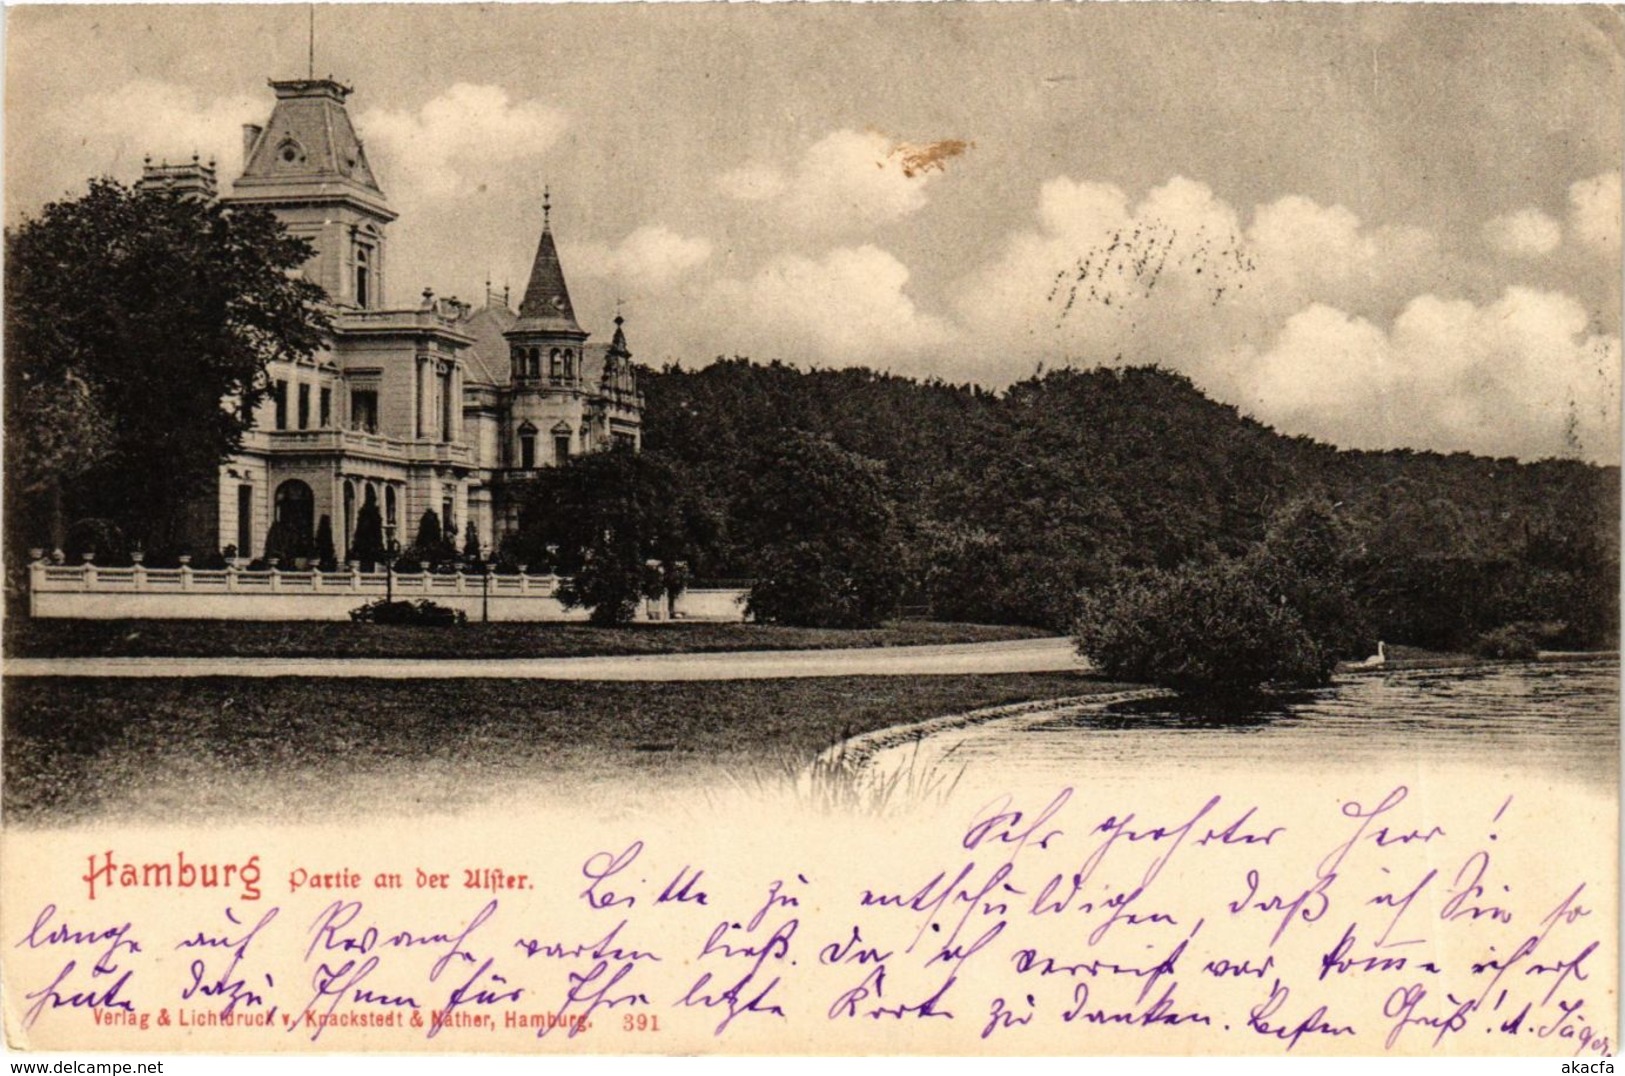 Sehr geehrter Herr!
Hamburg Partie an der Alster.
Bitte zu entschuldigen, daß ich Sie so
lange auf Revanche warten ließ. Da ich verreist war, komme ich erst
heute dazu, Ihnen für Ihre letzte Karte zu danken. Besten Gruß! A. Jäger.
Verlag & Lichtdruck v. Knackstedt & Näther, Hamburg. 391
akpool.com